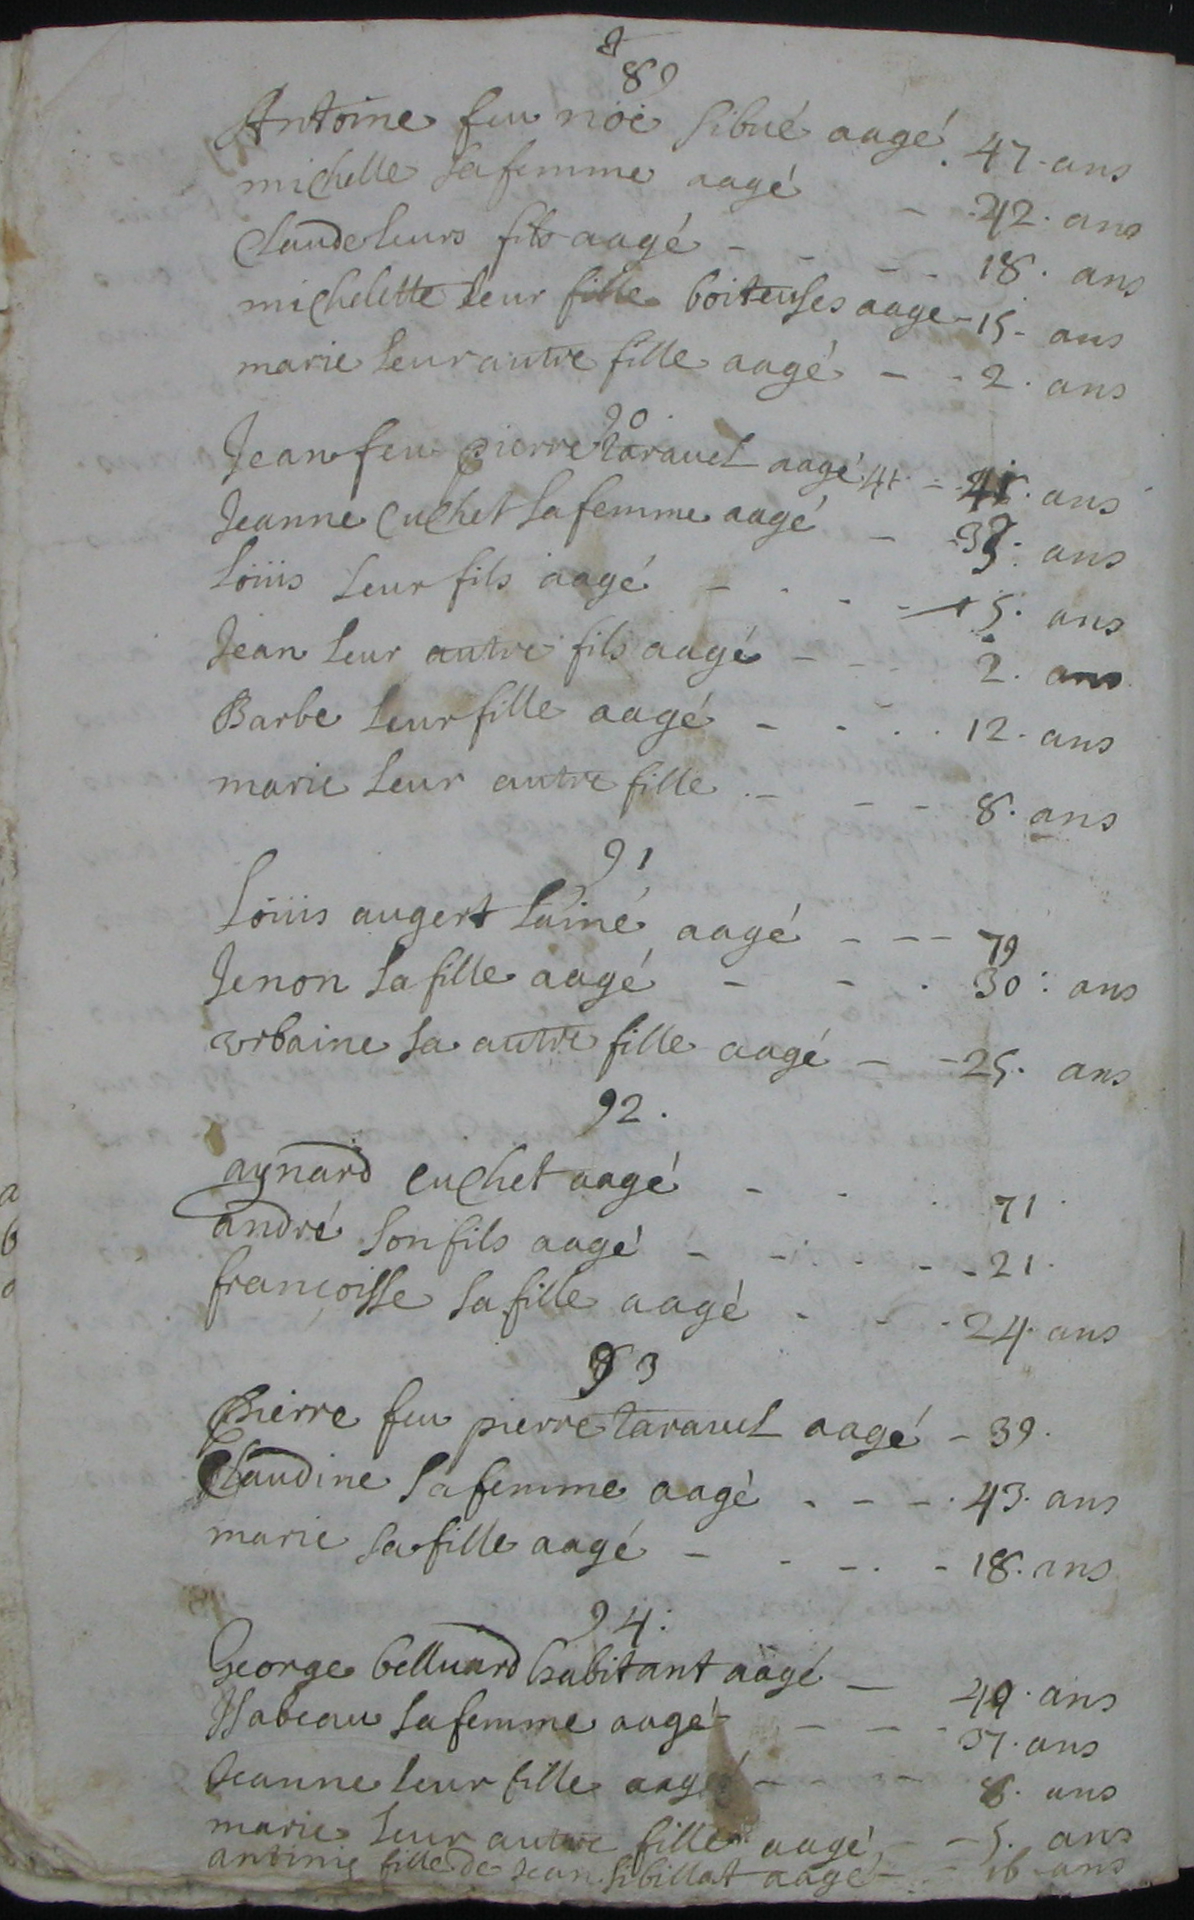 89
Antoine feu noë sibué aagé . 47 ans
michelle sa femme aagé - 42 . ans
Claude leurs fils aagé - - - - 18 . ans
michelette leur fille boiteuses aage - 15 - ans
marie leur autre fille aagé - - 2 . ans
90
Jean feu pierre taravel aagé 41 - 41 . ans
Jeanne Cuchet sa femme aagé - 39 . ans
Loüis leur fils aagé - - - - 15 . ans
Jean leur autre fils aagé - - - 2 . ans
Barbe leur fille aagé - - . . 12 . ans
marie leur autre fille - - - 8 . ans
91
Loüis augert l'ainé aagé - - - 79
Jenon sa fille aagé - - . 30 : ans
urbaine sa autre fille aagé - - 25 . ans
92 .
aynard Cuchet aagé - . . 71 .
andré son fils aagé - - . . - - 21 .
françoisse sa fille aagé - - - 24 . ans
93
Pierre feu pierre taravel aagé - 39 .
Claudine sa femme aagé . - - . 43 . ans
marie sa fille aagé - - - . - 18 . ans
94 :
George belluard habitant aagé - 49 . ans
Isabeau sa femme aagé - - - 37 . ans
Jeanne leur fille aagé - - - - 8 . ans
marie leur autre fille aagé - - 5 . ans
antinie fille de Jean sibillat aagé - - 16 ans